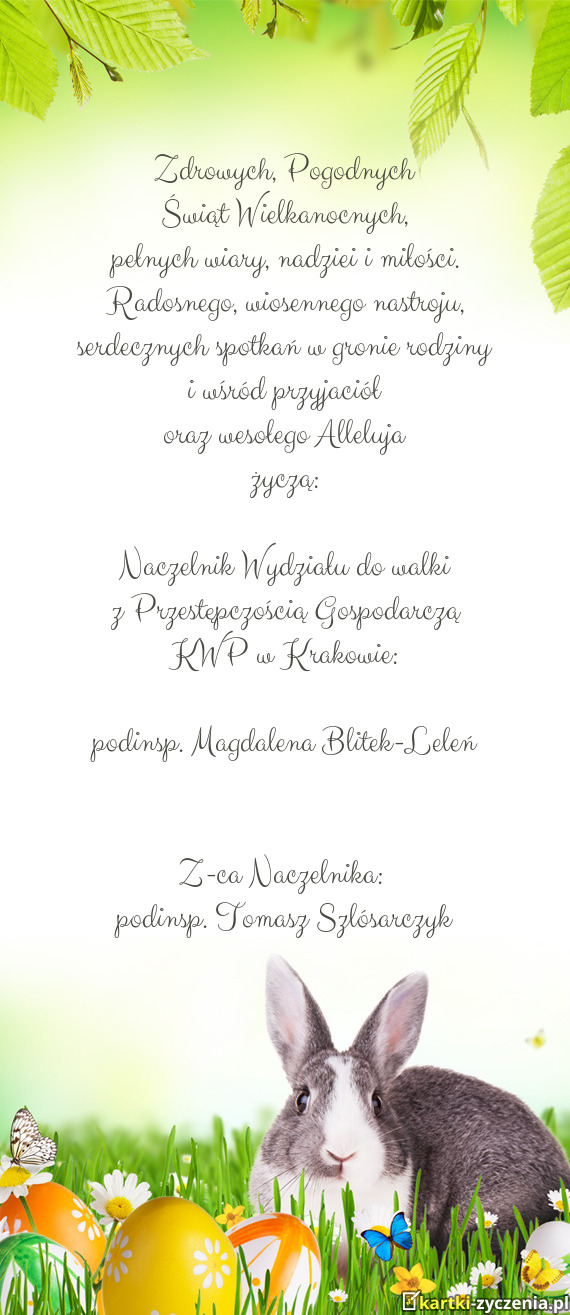 Zdrowych, Pogodnych
Świąt Wielkanocnych,
pełnych wiary, nadziei i miłości.
Radosnego, wiosennego nastroju,
serdecznych spotkań w gronie rodziny
i wśród przyjaciół
oraz wesołego Alleluja
życzą:
Naczelnik Wydziału do walki
z Przestępczością Gospodarczą
KWP w Krakowie:
podinsp. Magdalena Blitek-Leleń
Z-ca Naczelnika:
podinsp. Tomasz Szlósarczyk
kartki-zyczenia.pl